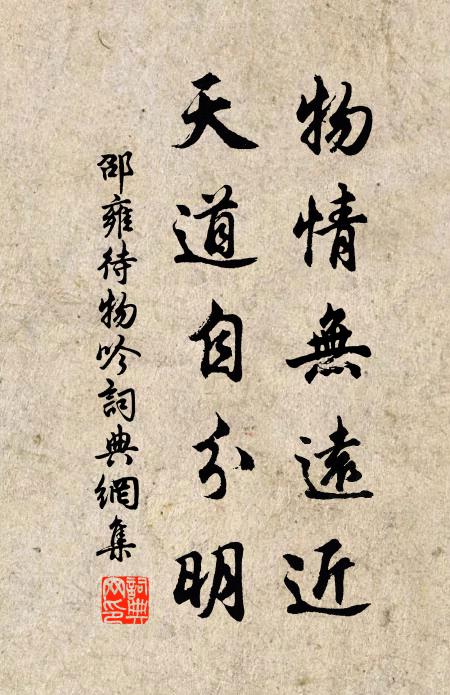 物情無遠近
天道自分明
邵雍待物吟詞典網集
詞典網印